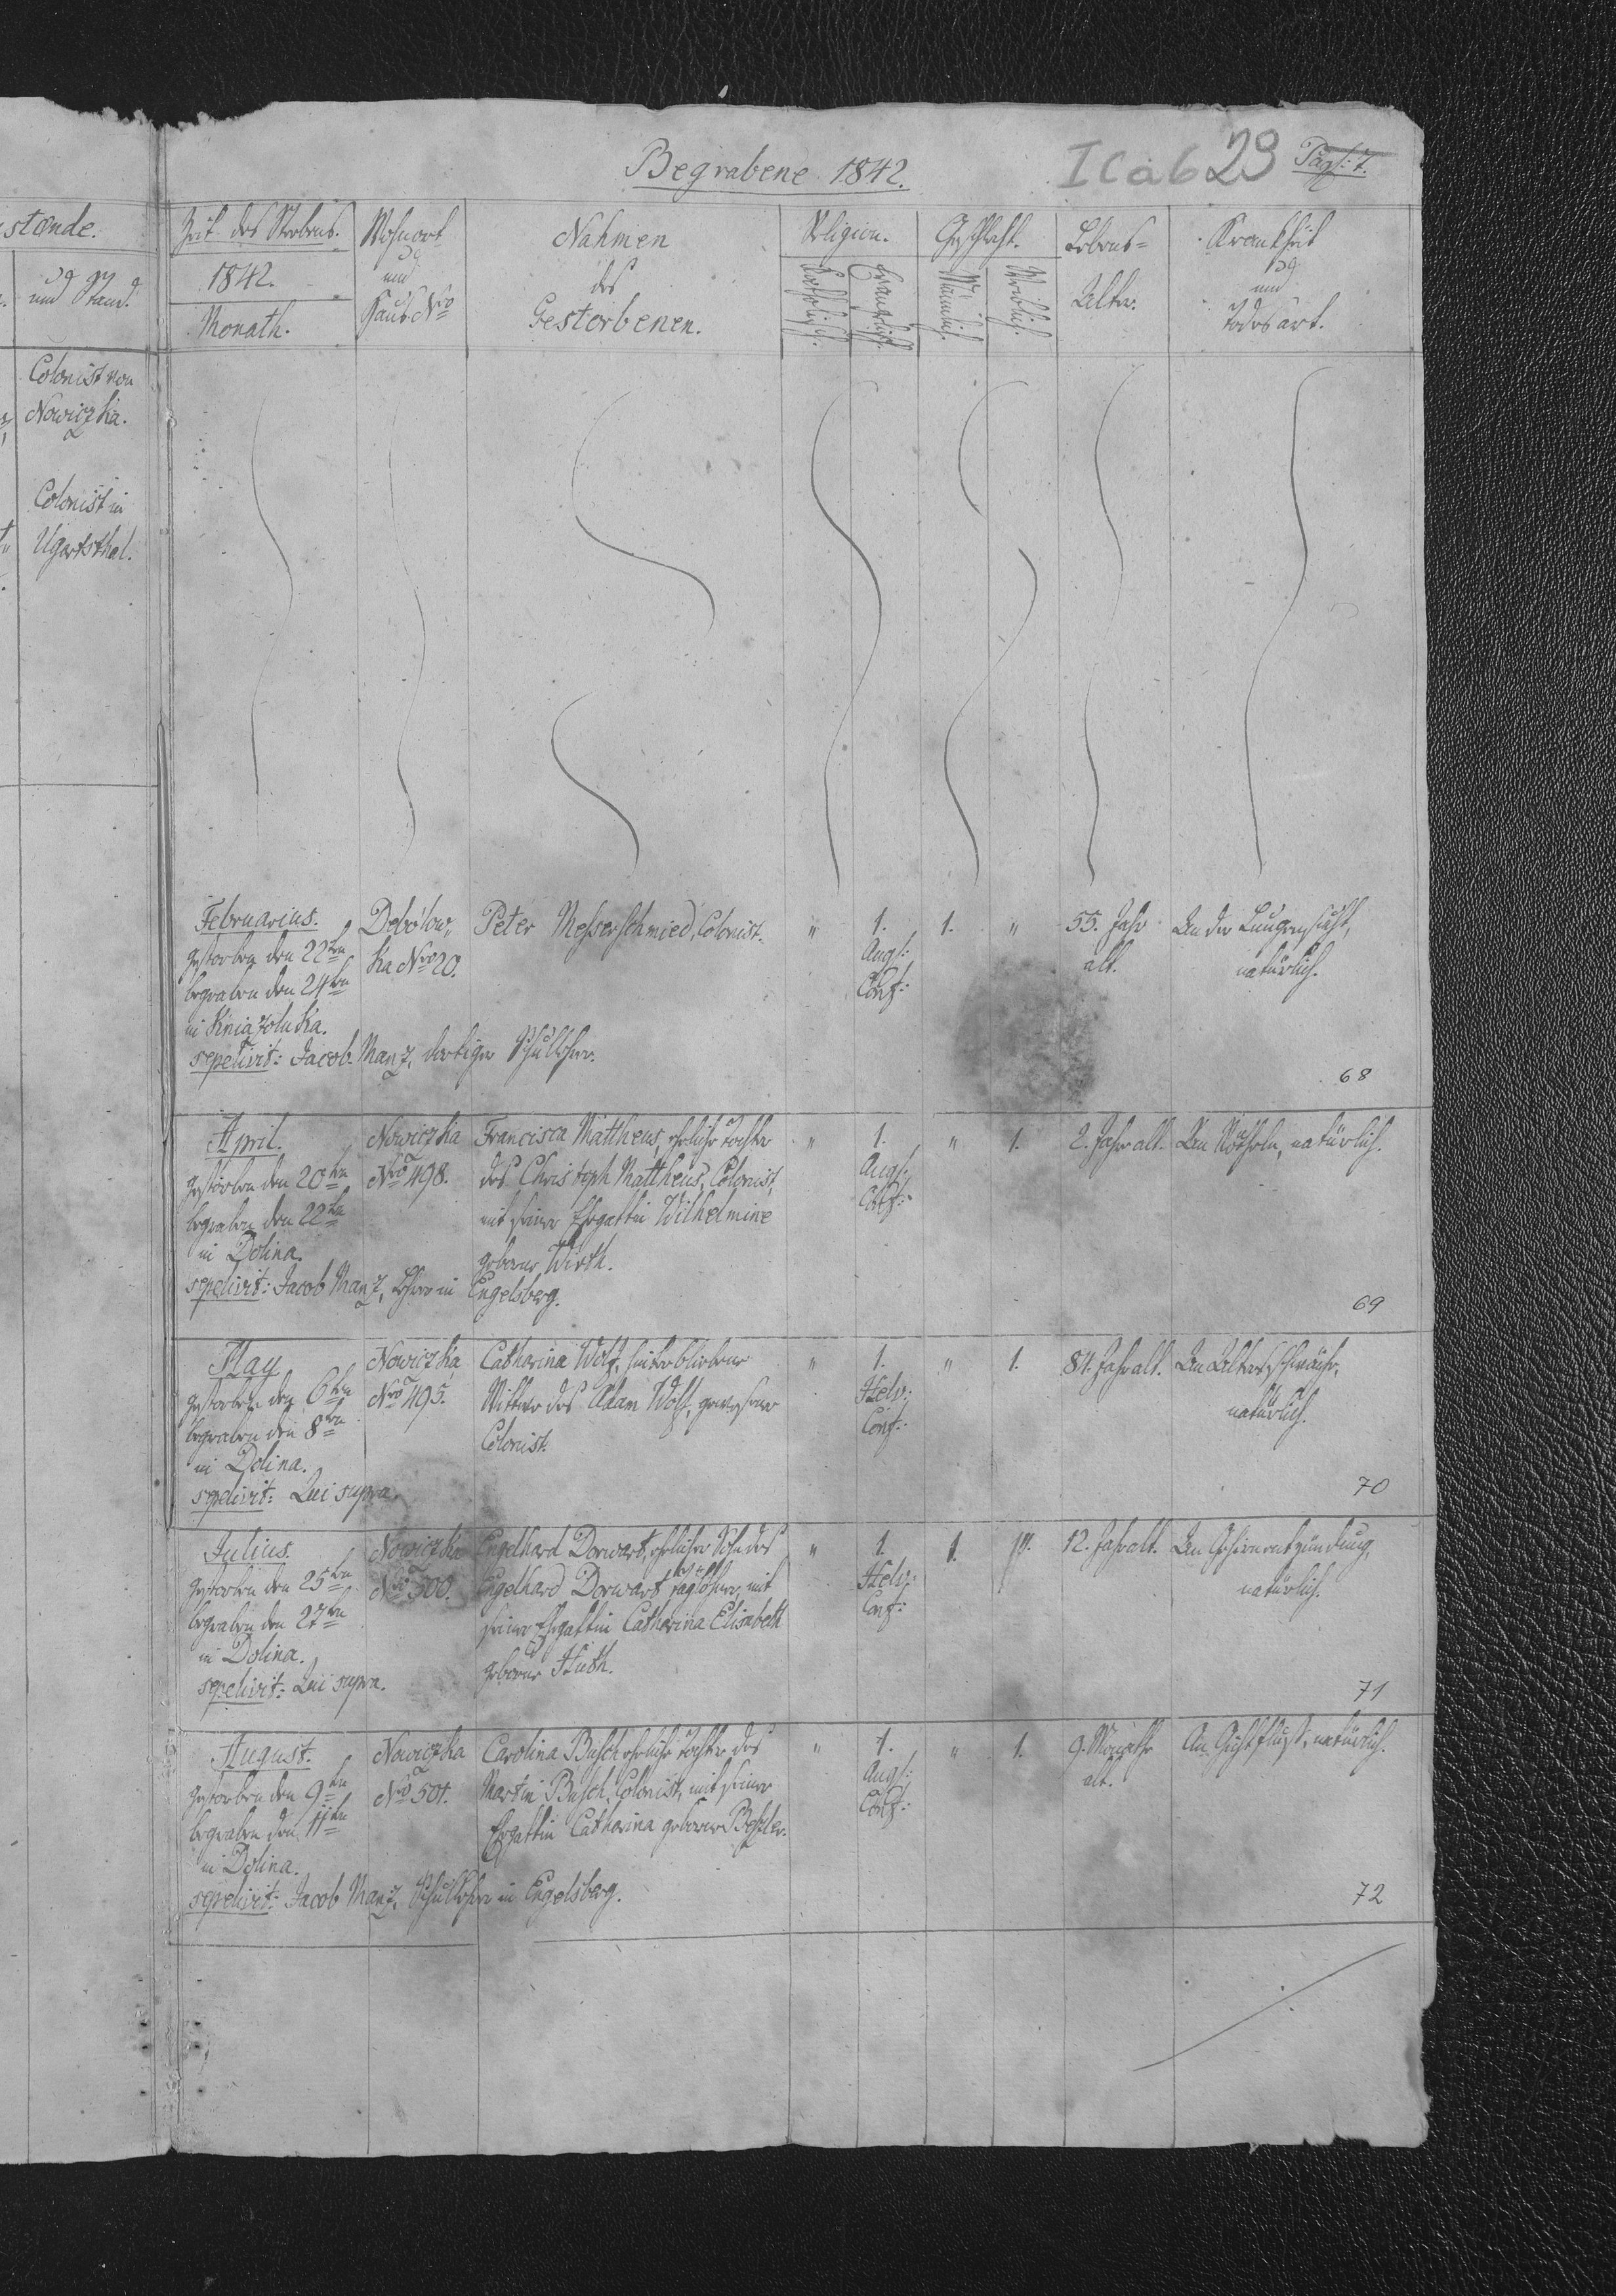 Begrabene 1842.
I C a b 29
Pag: 7.
stænde.
und Stand.
Colonist von
Nowiczka.
Colonist in
Ugartsthal.
Zeit des Sterbens.
1842.
Monath.
Wohnort
und
Haus Nro
Nahmen
des
Gestorbenen.
Religion.
Katholisch.
Geschlecht.
Männlich.
Weiblich.
Lebens-
Alter.
Krankheit
und
Todesart.
Februarius.
gestorben den 22ten
begraben den 24ten
in Kniazoluka.
sepelivit: Jacob Manz, dortiger Schullehrer.
Debólow-
ka Nro 20.
Peter Messerschmied, Colonist.
" 1. 1. "
Augs:
Conf:
55. Jahr
alt.
An der Lungensucht,
natürlich.
68
April.
gestorben den 20ten
begraben den 22ten
in Dolina.
sepelivit: Jacob Manz, Lehrer in Engelsberg.
Nowiczka
Nro 498.
Francisca Mattheus, eheliche Tochter
des Christoph Mattheus, Colonist,
mit seiner Ehegattin Wilhelmine
geborne Wirth.
" 1. " 1.
Augs:
Conf:
2. Jahr alt.
An Rötheln, natürlich.
69
May
gestorben den 6ten
begraben den 8ten
in Dolina.
sepelivit: Qui supra.
Nowiczka
Nro 495.
Catharina Wolf, hinterbliebene
Wittwe des Adam Wolf, gewesener
Colonist.
" 1. " 1.
Helv:
Conf:
84. Jahr alt.
An Altersschwäche,
natürlich.
70
Julius.
gestorben den 25ten
begraben den 27ten
in Dolina.
sepelivit: Qui supra.
Nowiczka
Nro 500.
Engelhard Dorwart, ehelicher Sohn des
Engelhard Dorwart Taglöhner, mit
seiner Ehegattin Catharina Elisabeth
geborne Huth.
" 1. 1.
Helv:
Conf:
12. Jahr alt.
An Gehirnentzündung,
natürlich.
71
August.
gestorben den 9ten
begraben den 11ten
in Dolina.
sepelivit: Jacob Manz, Schullehrer in Engelsberg.
Nowiczka
Nro 501.
Carolina Busch eheliche Tochter des
Martin Busch, Colonist, mit seiner
Ehegattin Catharina geborne
" 1. " 1.
Augs:
Conf:
9. Monathe
alt.
An natürlich.
72